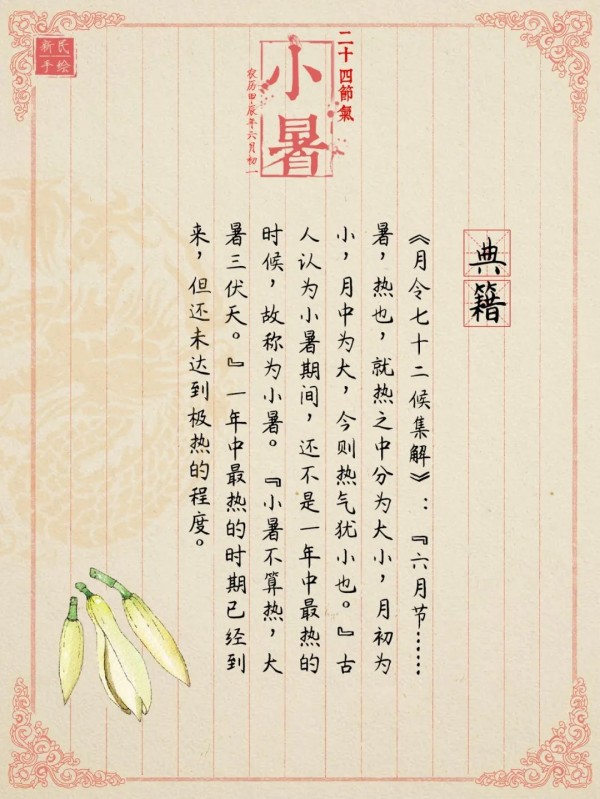 新氏
手绘
二十四節氣
小暑
农历甲辰年六月初一
典籍
《月令七十二候集解》：『六月节……
暑，热也，就热之中分为大小，月初为
小，月中为大，今则热气犹小也。』古
人认为小暑期间，还不是一年中最热的
时候，故称为小暑。『小暑不算热，大
暑三伏天。』一年中最热的时期已经到
来，但还未达到极热的程度。